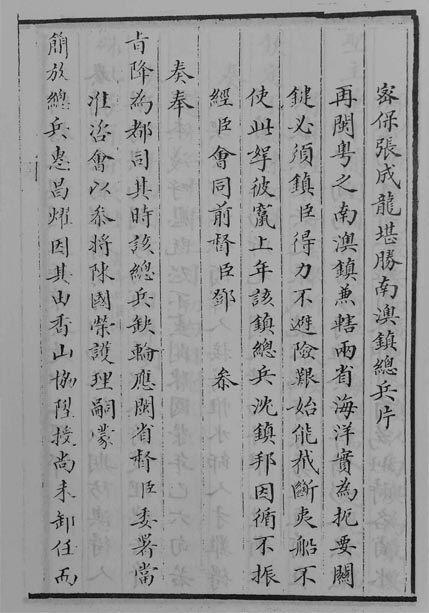 密保張成龍堪勝南澳鎮總兵片
再閩粵之南澳鎮兼轄兩省海洋實為扼要關
鍵必須鎮臣得力不避險艱始能截斷夷船不
使此拏彼竄上年該鎮總兵沈鎮邦因循不振
經臣會同前督臣鄧 叅
奏奉
旨降為都司其時該總兵缺輪應閩省督臣委署當
准咨會以叅將陳國榮護理嗣蒙
簡放總兵惠昌燿因其由香山協陞授尚未卸任而